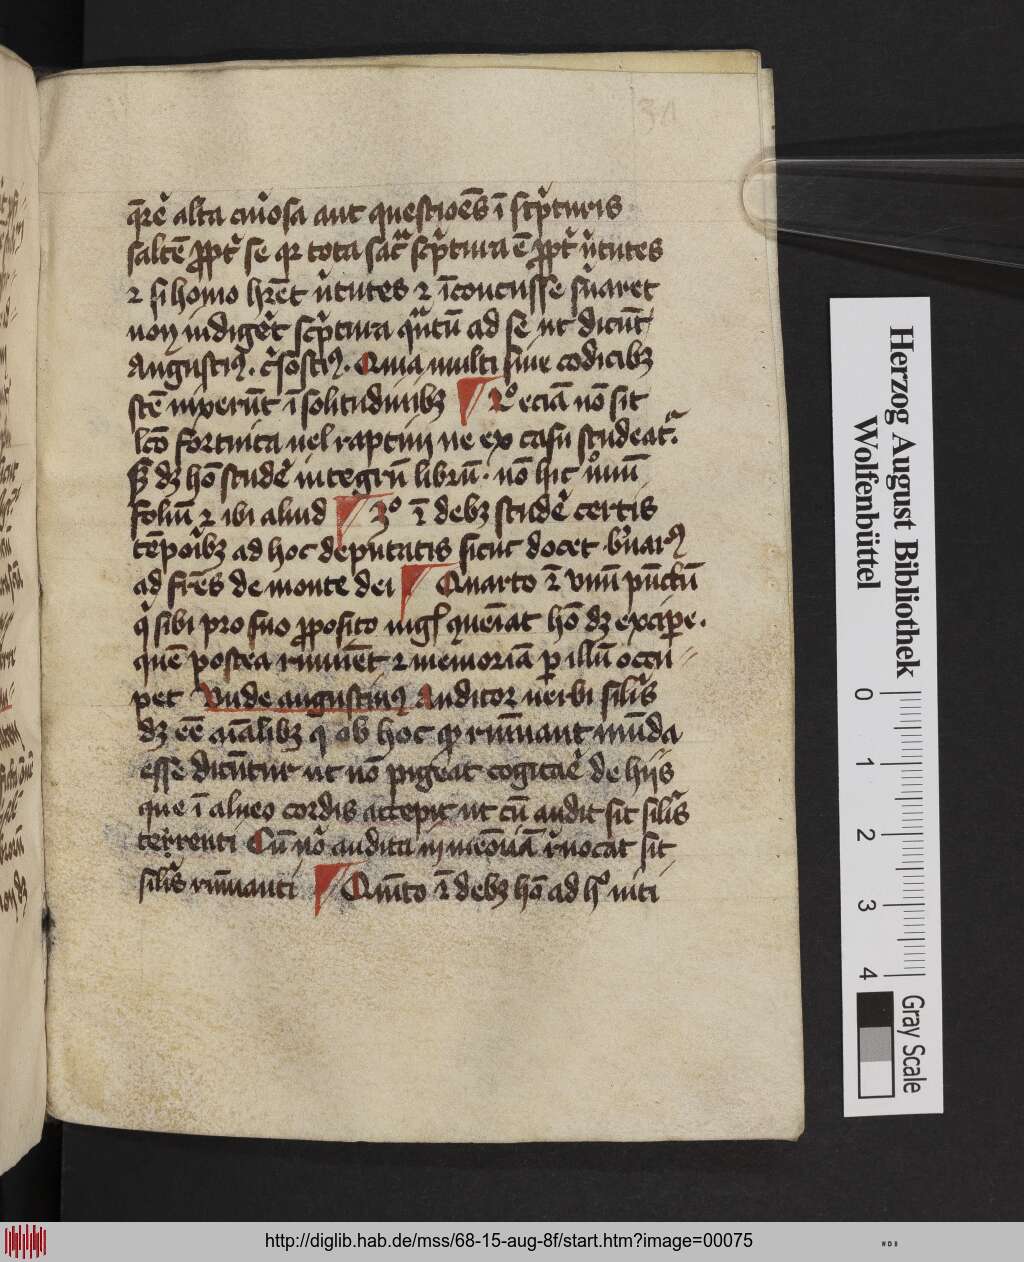 31
q̄rē alta cur̉osa aut questioēs ī sc̉pturis
saltē ꝓpt̉ se qꝛ tota sac̉ sc̉ptura ē ꝓpt̉ v̉tutes
⁊ si homo hr̄et v̉tutes ⁊ īconcusse sūaret
non indiget̉ sc̉ptura qn̄tū ad se ut dicūt
Augustinꝰ. c̉sostꝰ. Quia multi sine codicibꝫ
stē uixerūt ī solitudinibꝫ ¶ 2º eciā nō sit
lc̄o fortuita uel raptim ne ex casu studeat᷑.
Sꝫ dꝫ hō studē integrū librū. nō hic vnū
foliū ⁊ ibi aliud ¶ 3º ī debꝫ studē certis
tēpor̉ibꝫ ad hoc deputatis sicut docet bn̉arꝰ
ad fr̄es de monte dei ¶ Quarto ī vnū pūctū
q̉ sibi pro suo ꝓposito mgͥ quēiat hō dꝫ excipe.
quē postea ruminēt ⁊ memoriā ꝑ illū occu
pet Unde augustinꝰ Auditor uerbi silīs
dꝫ eē aīalibꝫ q̄ ob hoc qꝛ ruīnant mūda
esse dicūtur ut nō pigeat cogitaē de hijs
que ī alueo cordis accepit ut cū audit sit silīs
terrenti Cū u̾o audita in mēoriā r̉uocat sit
silīs ruīnanti ¶ Quīto ī debꝫ hō ad hͦ niti
Herzog August Bibliothek
Wolfenbüttel
0 1 2 3 4
Gray Scale
http://diglib.hab.de/mss/68-15-aug-8f/start.htm?image=00075